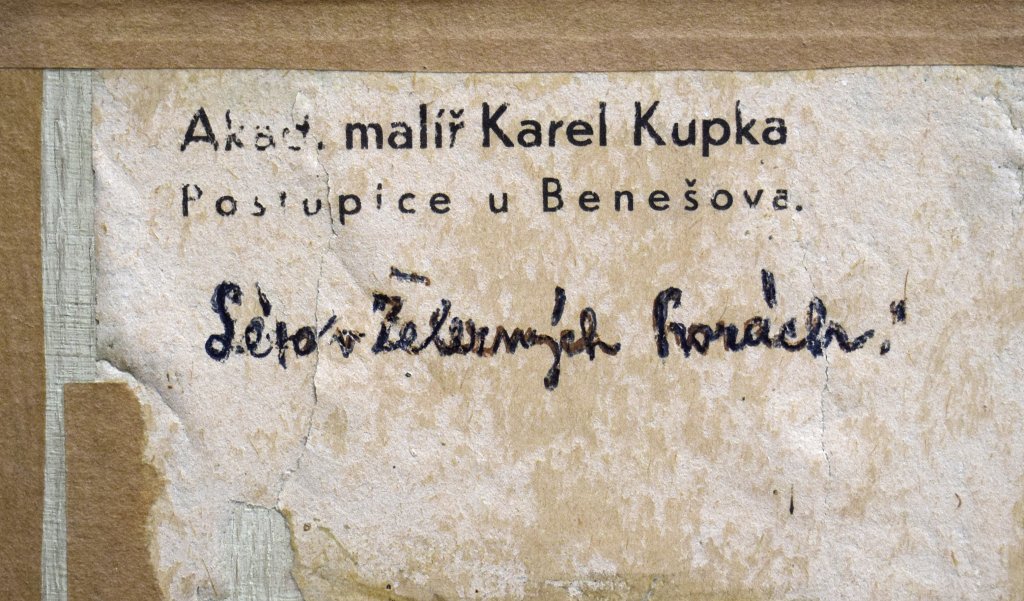 Akad. malíř Karel Kupka
Postupice u Benešova.
Léto v Železných horách."